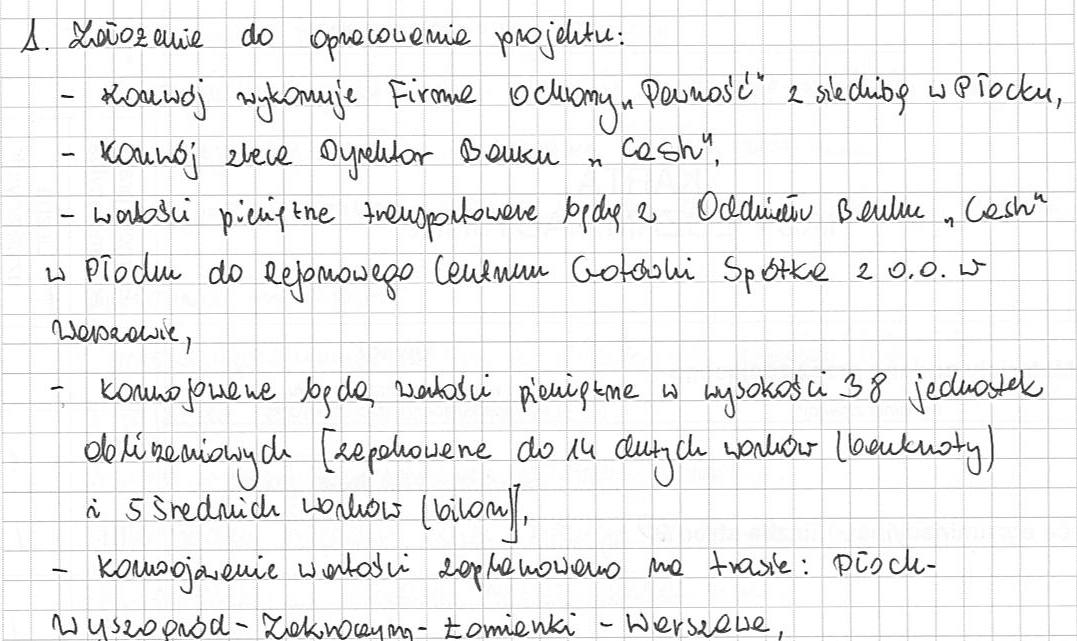 1. Założenie do opracowania projektu:
- Konwój wykonuje Firma Ochrony „Pewność" z siedzibą w Płocku,
- Konwój zleca Dyrektor Banku „Cash",
- wartości pieniężne transportowane będą z Oddziału Banku „Cash"
w Płocku do Rejonowego Centrum Gotówki Spółka z o.o. w
Warszawie,
- konwojowane będą wartości pieniężne w wysokości 38 jednostek
obliczeniowych [zapakowane do 14 dużych worków (banknoty)
i 5 średnich worków (bilon)],
- konwojowanie wartości zaplanowano na trasie: Płock-
Wyszogród - Zakroczym - Łomianki - Warszawa,